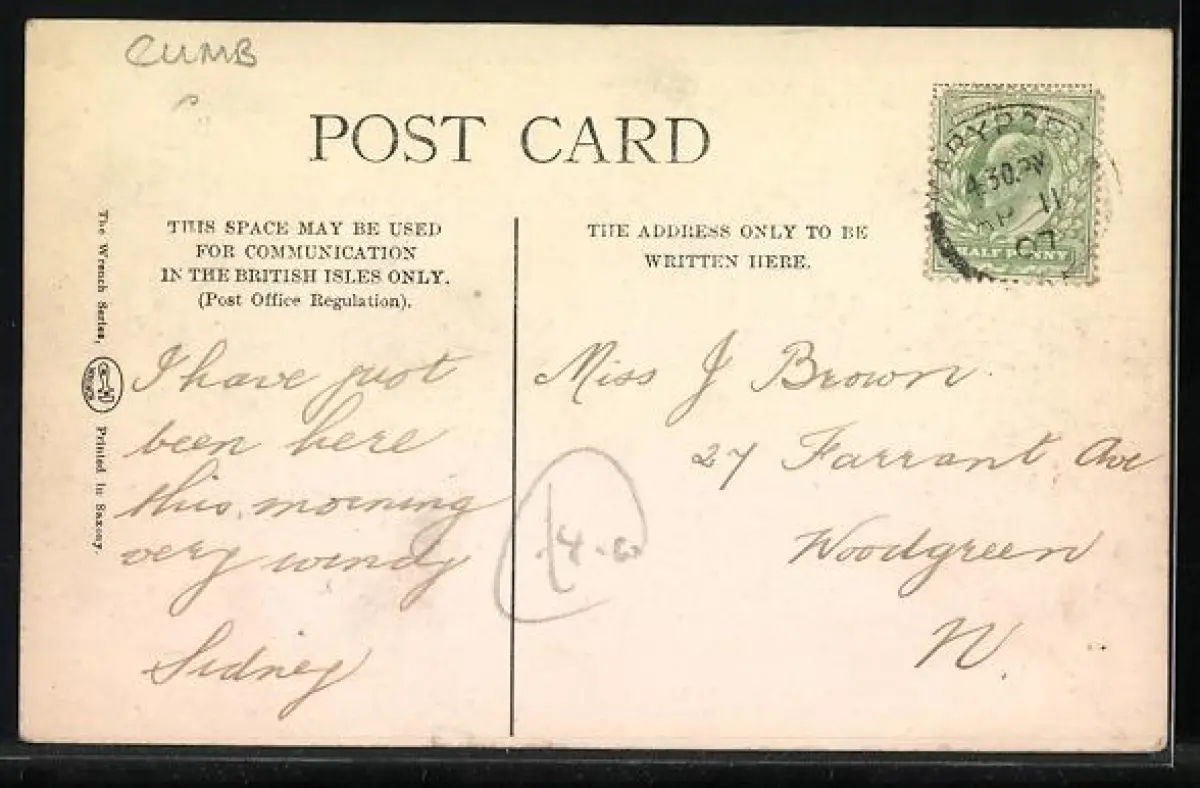 CUMB
POST CARD
MARYPORT
4.30 PM
AP 11
07
HALF PENNY
THIS SPACE MAY BE USED
FOR COMMUNICATION
IN THE BRITISH ISLES ONLY.
(Post Office Regulation).
THE ADDRESS ONLY TO BE
WRITTEN HERE.
The Wrench Series,
Printed in Saxony.
I have just
been here
this morning
very windy
Sidney
Miss J Brown
27 Farrant Ave
Woodgreen
N.